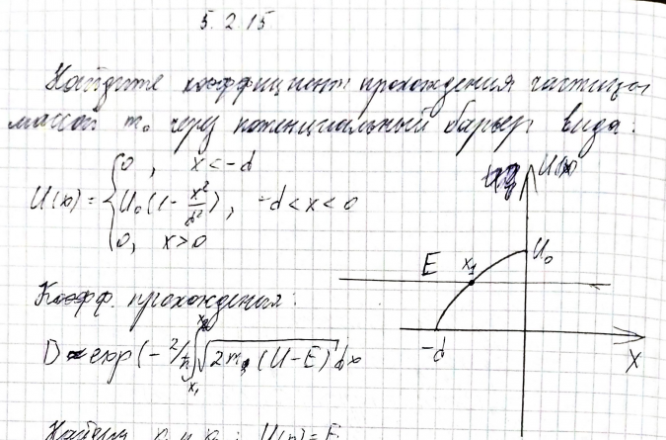 5.2.15
Найдите коэффициент прохождения частицы
массой m₀ через потенциальный барьер вида:
U(x) = { 0, x < -d
U₀(1 - x²/d²), -d < x < 0
0, x > 0
U(x)
U₀
E
x₁
-d
x
Коэфф. прохождения:
D ~ exp(-2/ħ ∫ₓ₁ˣ² √2m₀(U-E) dx
Найдем x₁ и x₂: U(x) = E